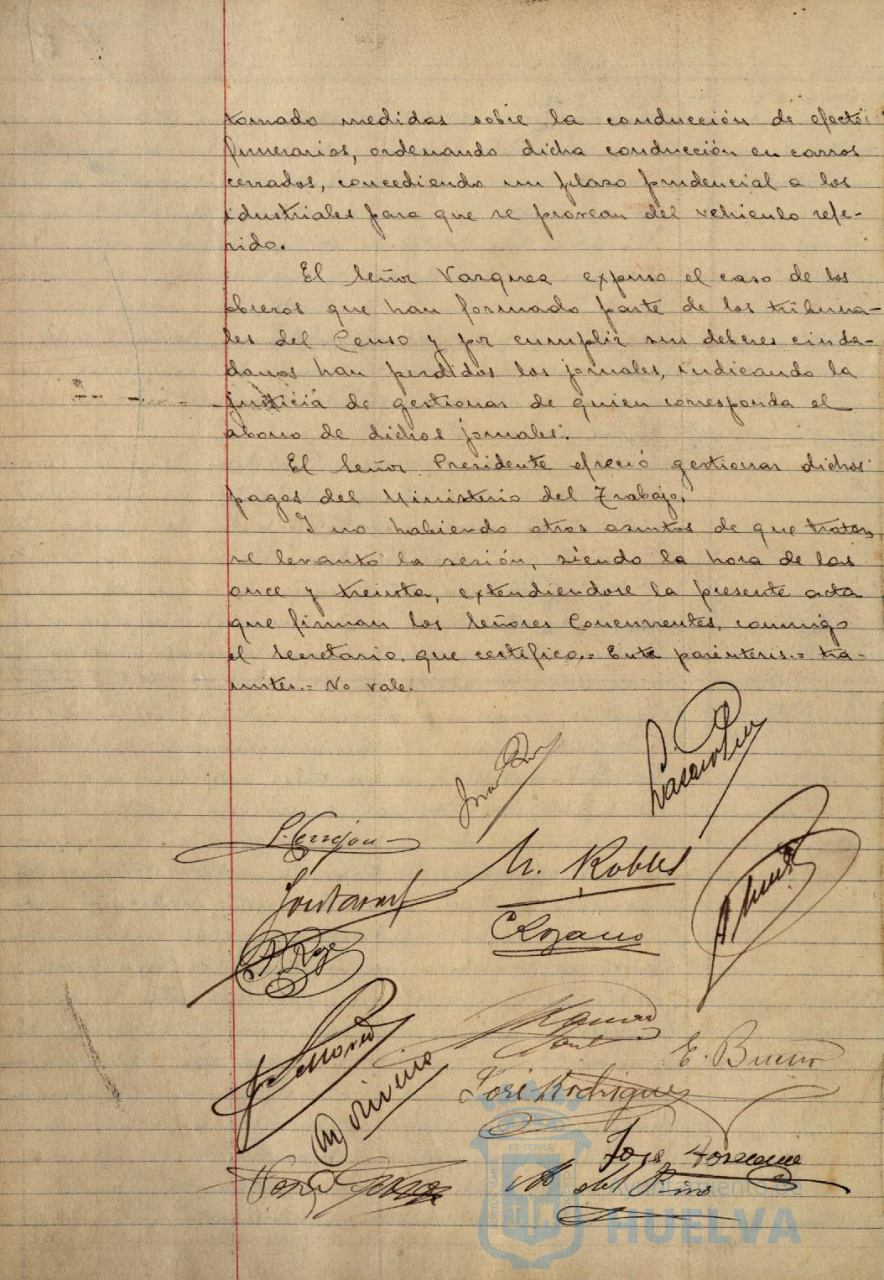 tomado medidas sobre la conducción de efectos
funerarios, ordenando dicha conducción en carros
cerrados, concediendo un plazo prudencial a los
idustriales para que se provean del vehiculo refe-
rido.
El Señor Vazquez expuso el caso de los
obreros que han formado parte de los tribuna-
les del Censo y por cumplir sus deberes ciuda-
danos han perdidos los jornales, indicando la
justicia de gestionar de quien corresponda el
abono de dichos jornales.
El Señor Presidente ofreció gestionar dichos
pagos del Ministerio del Trabajo.
Y no habiendo otros asuntos de que tratar,
se levantó la sesión, siendo la hora de las
once y treinta, extendiendose la presente acta
que firman los Señores Concurrentes, conmigo
el Secretario, que certifico.= Entre paréntesis.= tra-
mites.= No vale.
M. Robles
C Lozano
E. Bueno
José Rodriguez
José
del Pino
HUELVA